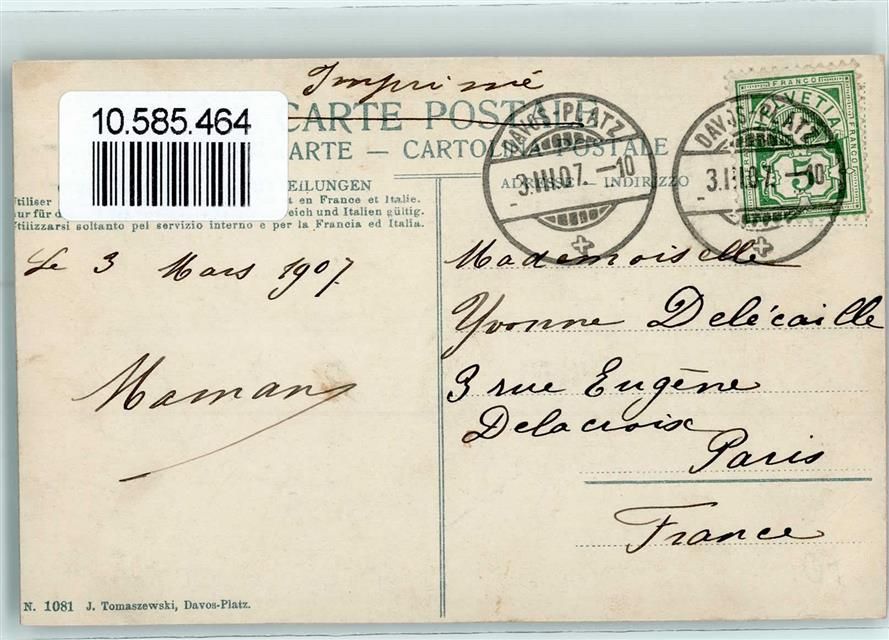 Imprimé
10.585.464
CARTE POSTALE
ARTE — CARTOLINA POSTALE
EILUNGEN
ADRESSE — INDIRIZZO
Utiliser t en France et Italie.
ur für d eich und Italien gültig.
Utilizzarsi soltanto pel servizio interno e per la Francia ed Italia.
DAVOS-PLATZ
3.III.07.—10
DAVOS-PLATZ
3.III.07.—10
FRANCO
HELVETIA
FRANCO
5
Le 3 Mars 1907.
Maman
Mademoiselle
Yvonne Delécaille
3 rue Eugène
Delacroix
Paris
France
N. 1081 J. Tomaszewski, Davos-Platz.